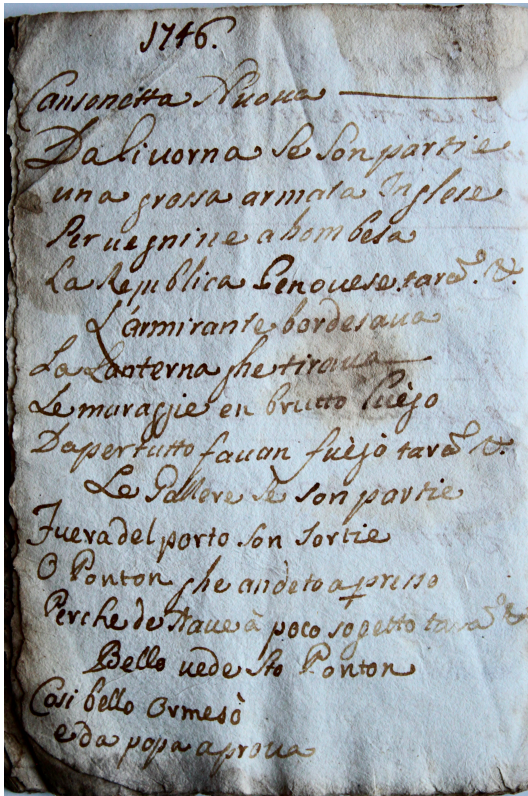 1746.
Cansonetta Nuova
Da livorna se son partie
una grossa armata Inglese
Per vegnine a bombesa
La Republica Genovese. tarã. &.
L'armirante bordesava
La Lanterna ghe tirava
Le muragie en brutto lúèjo
Dapertutto favan fuèjo tarã &.
Le Gallere se son partie
Fuera del porto son sortie
O Ponton ghe andeto apresso
Perche de Nave à poco sogetto tarã &
Bello vede sto Ponton
Cosi bello ormesò
e da popa a prova